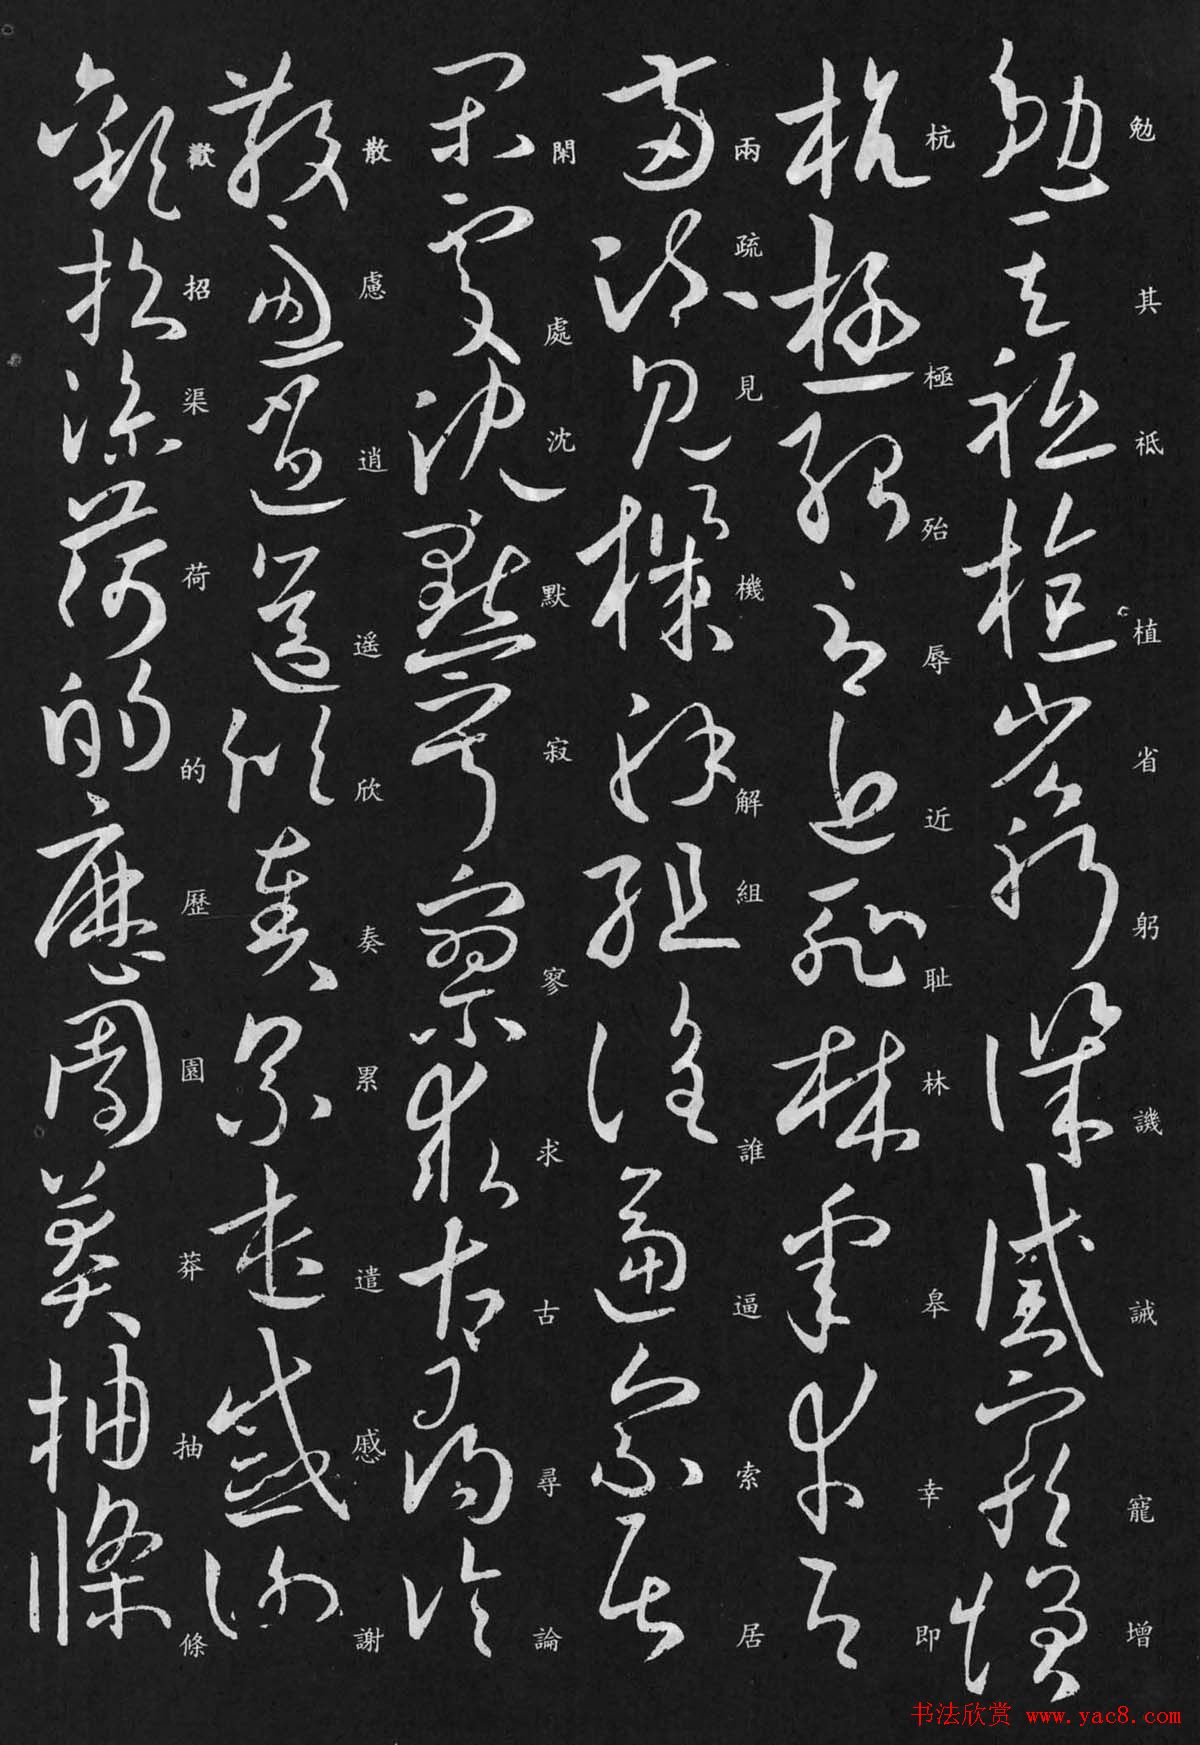 勉其祗植省躬譏誡寵增
杭極殆辱近耻林皋幸即
兩疏見機解組誰逼索居
閑處沈默寂寥求古尋論
散慮逍遥欣奏累遣慼謝
歡招渠荷的歷園莽抽條
书法欣赏 www.yac8.com